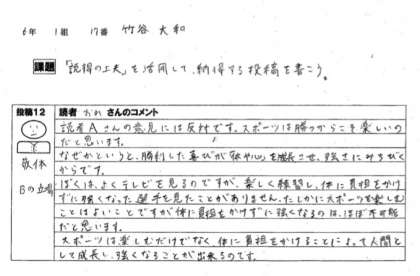 6年 1組 17番 竹谷 大和
課題 「説得の工夫」を活用して、納得する投稿を書こう。
投稿12 読者 おの さんのコメント
敬体
Bの立場
読者Aさんの意見には反対です。スポーツは勝つからこそ楽しいの
だと思います。
なぜかというと、勝利した喜びが「体や心」を成長させ、強さにみちびく
からです。
ぼくは、よくテレビを見るのですが、楽しく練習し、体に負担をかけ
ずに強くなった選手を見たことがありません。たしかにスポーツを楽しむ
ことはよいことですが体に負担をかけずに強くなるのは、ほぼ不可能
だと思います。
スポーツは楽しむだけでなく、体に負担をかけることによって人間と
して成長し、強くなることが出来るのです。